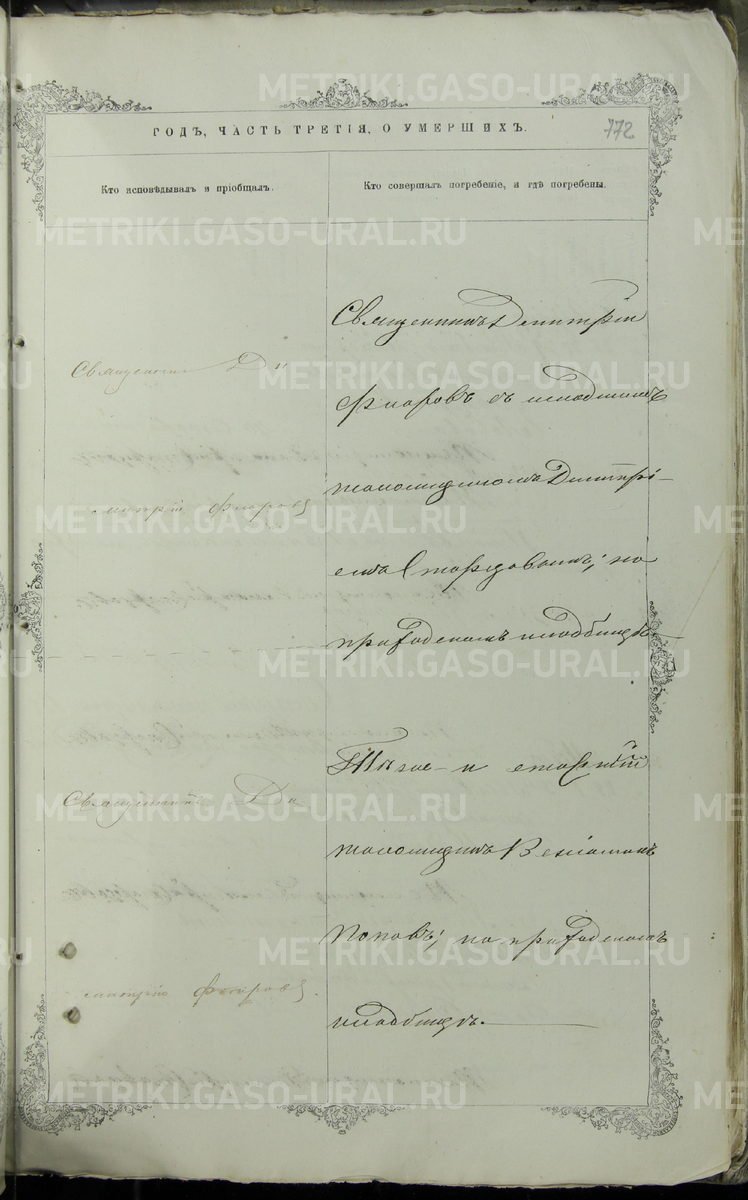 METRIKI.GASO-URAL.RU
ГОДЪ, ЧАСТЬ ТРЕТІЯ, О УМЕРШИХЪ.
772
Кто исповѣдывалъ и пріобщалъ.
Кто совершалъ погребеніе, и гдѣ погребены.
Священникъ Ди
митрій Флоровъ
Священникъ Димитрій
Флоровъ съ младшимъ
псаломщикомъ Димитрі-
емъ
на
приходскомъ кладбищѣ
Священникъ Ди
митрій Флоровъ
Тѣже и старшій
псаломщикъ Веніаминъ
Поповъ; на приходскомъ
кладбищѣ.